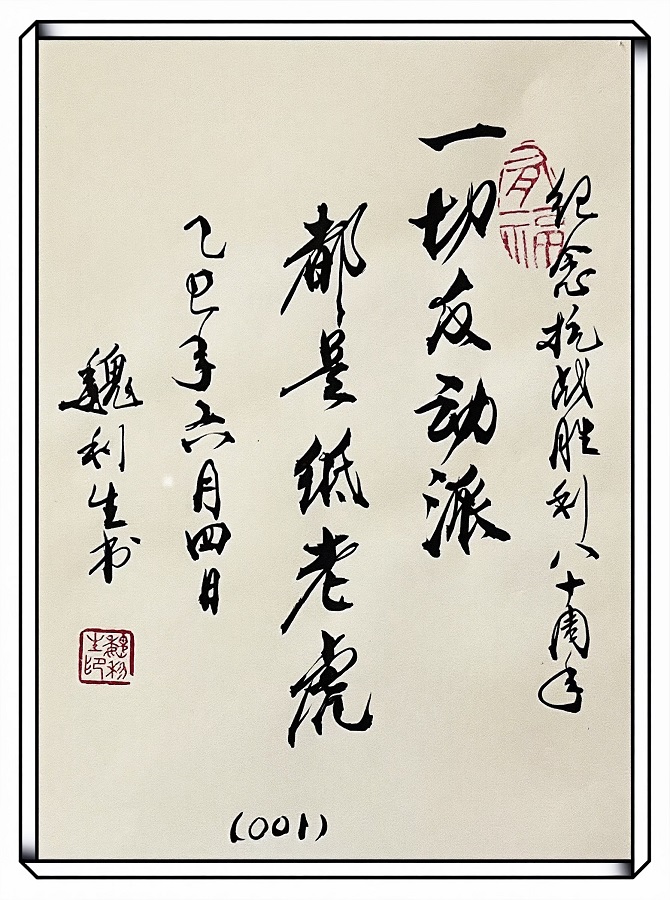 纪念抗战胜利八十周年
一切反动派
都是纸老虎
乙巳年六月四日
魏利生书
魏利生印
(001)